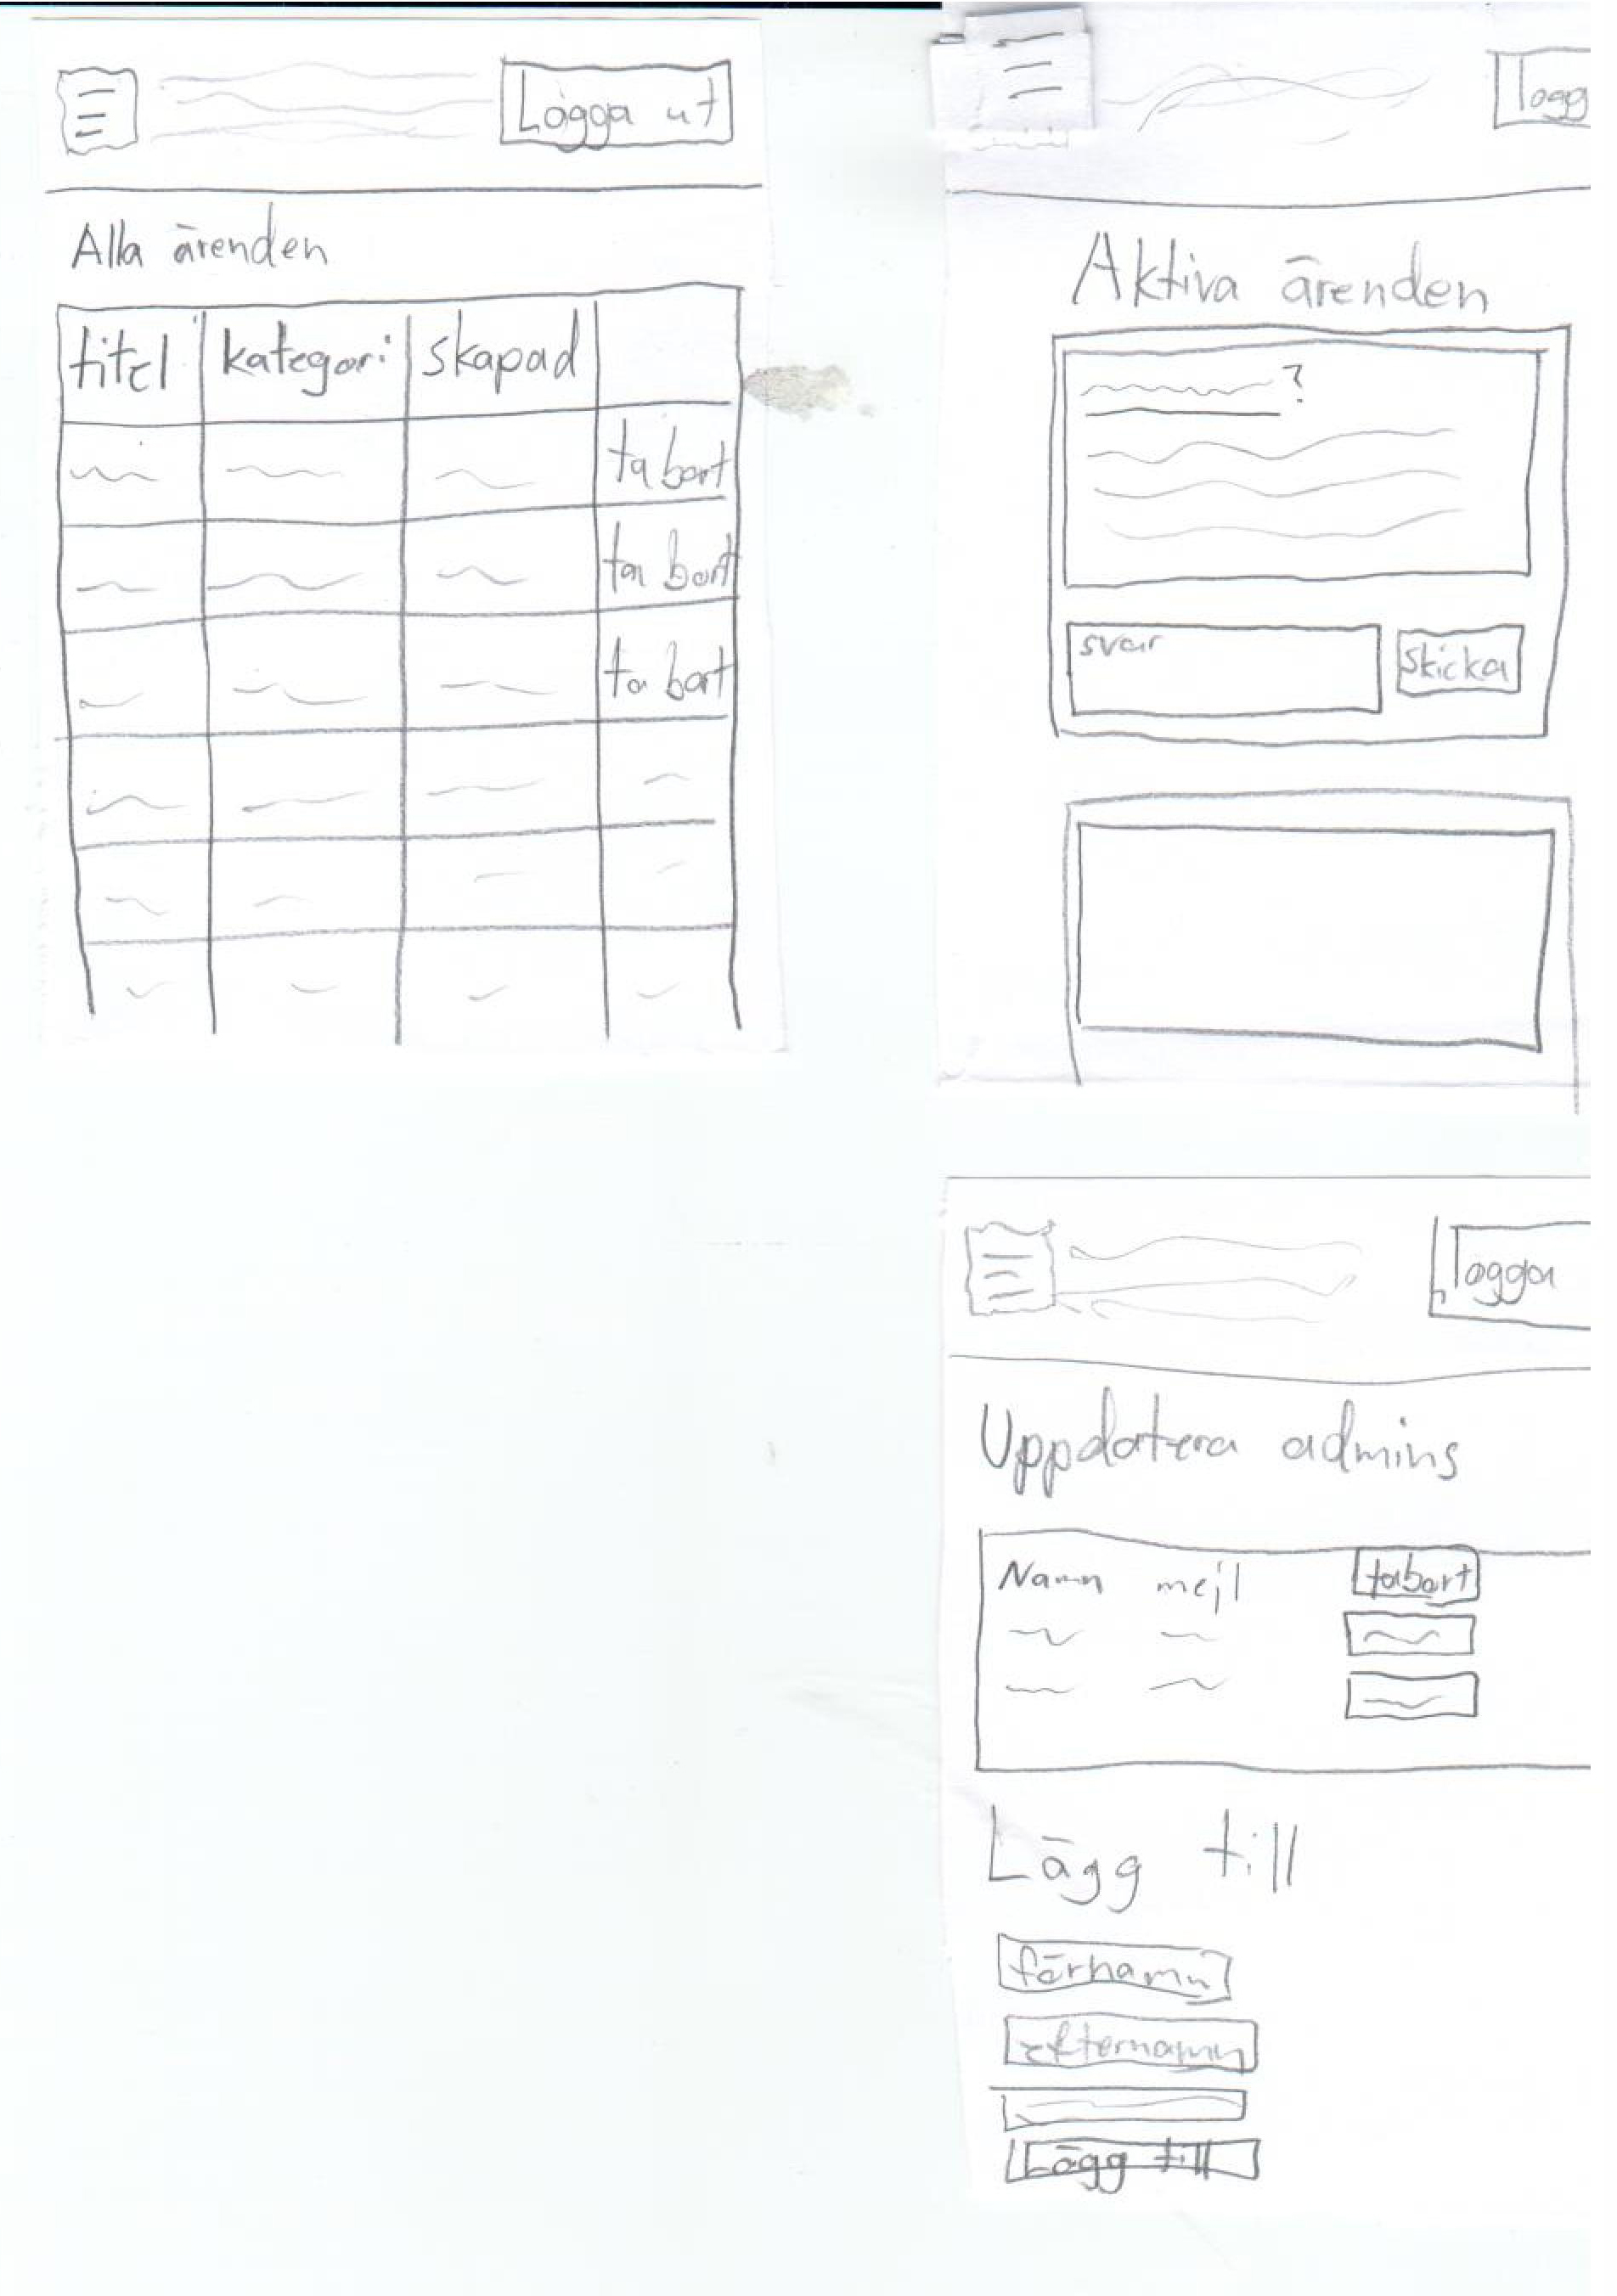 Logga ut
Alla ärenden
titel kategori skapad
ta bort
ta bort
ta bort
logg
Aktiva ärenden
?
svar
skicka
logga
Uppdatera admins
Namn mejl ta bort
Lägg till
förnamn
efternamn
Lägg till